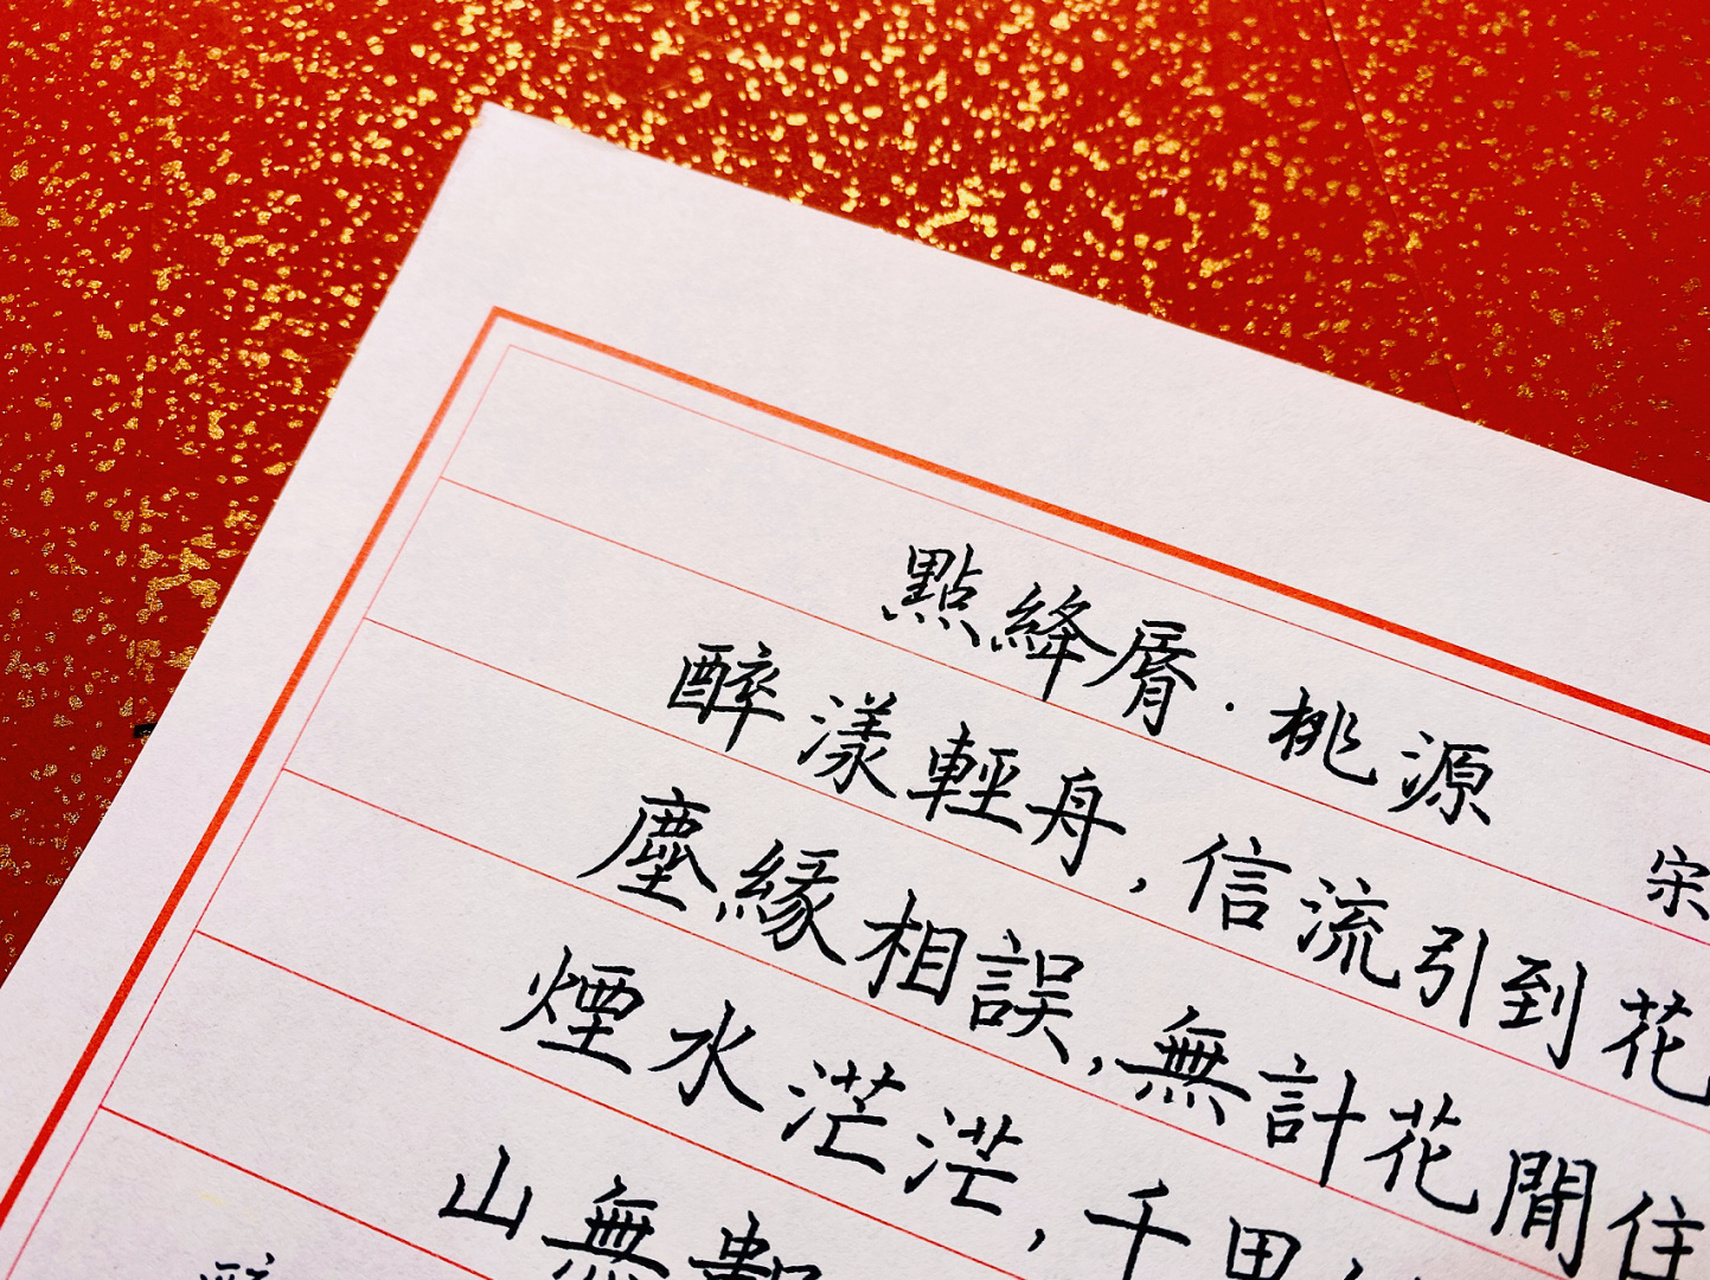 點絳脣·桃源 宋
醉漾輕舟,信流引到花
塵緣相誤,無計花間住
煙水茫茫,千
山無數
醉